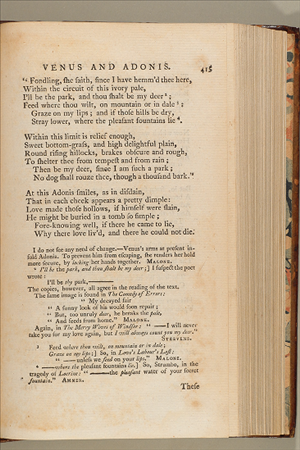 VENUS AND ADONIS.
415
“ Fondling, ſhe ſaith, ſince I have hemm'd thee here,
Within the circuit of this ivory pale,
I'll be the park, and thou ſhalt be my deer²;
Feed where thou wilt, on mountain or in dale³:
Graze on my lips; and if thoſe hills be dry,
Stray lower, where the pleaſant fountains lie⁴.
Within this limit is relief enough,
Sweet bottom-graſs, and high delightful plain,
Round riſing hillocks, brakes obſcure and rough,
To ſhelter thee from tempeſt and from rain;
Then be my deer, ſince I am ſuch a park;
No dog ſhall rouze thee, though a thouſand bark.”
At this Adonis ſmiles, as in diſdain,
That in each cheek appears a pretty dimple:
Love made thoſe hollows, if himſelf were ſlain,
He might be buried in a tomb ſo ſimple;
Fore-knowing well, if there he came to lie,
Why there love liv'd, and there he could not die.
I do not ſee any need of change.—Venus's arms at preſent in-
fold Adonis. To prevent him from eſcaping, ſhe renders her hold
more ſecure, by locking her hands together. MALONE.
² I'll be the park, and thou ſhalt be my deer;] I ſuſpect the poet
wrote:
I'll be thy park,
The copies, however, all agree in the reading of the text.
The ſame image is found in The Comedy of Errors:
“ My decayed fair
“ A ſunny look of his would ſoon repair;
“ But, too unruly deer, he breaks the pale,
“ And feeds from home.” MALONE.
Again, in The Merry Wives of Windſor: “ —I will never
take you for my love again, but I will always count you my deer.”
STEEVENS.
³ Feed where thou wilt, on mountain or in dale;
Graze on my lips;] So, in Love's Labour's Loſt:
“ —unleſs we feed on your lips.” MALONE.
⁴ —where the pleaſant fountains lie.] So, Strumbo, in the
tragedy of Locrine: “ —the pleaſant water of your ſecret
fountain.” AMNER.
Theſe